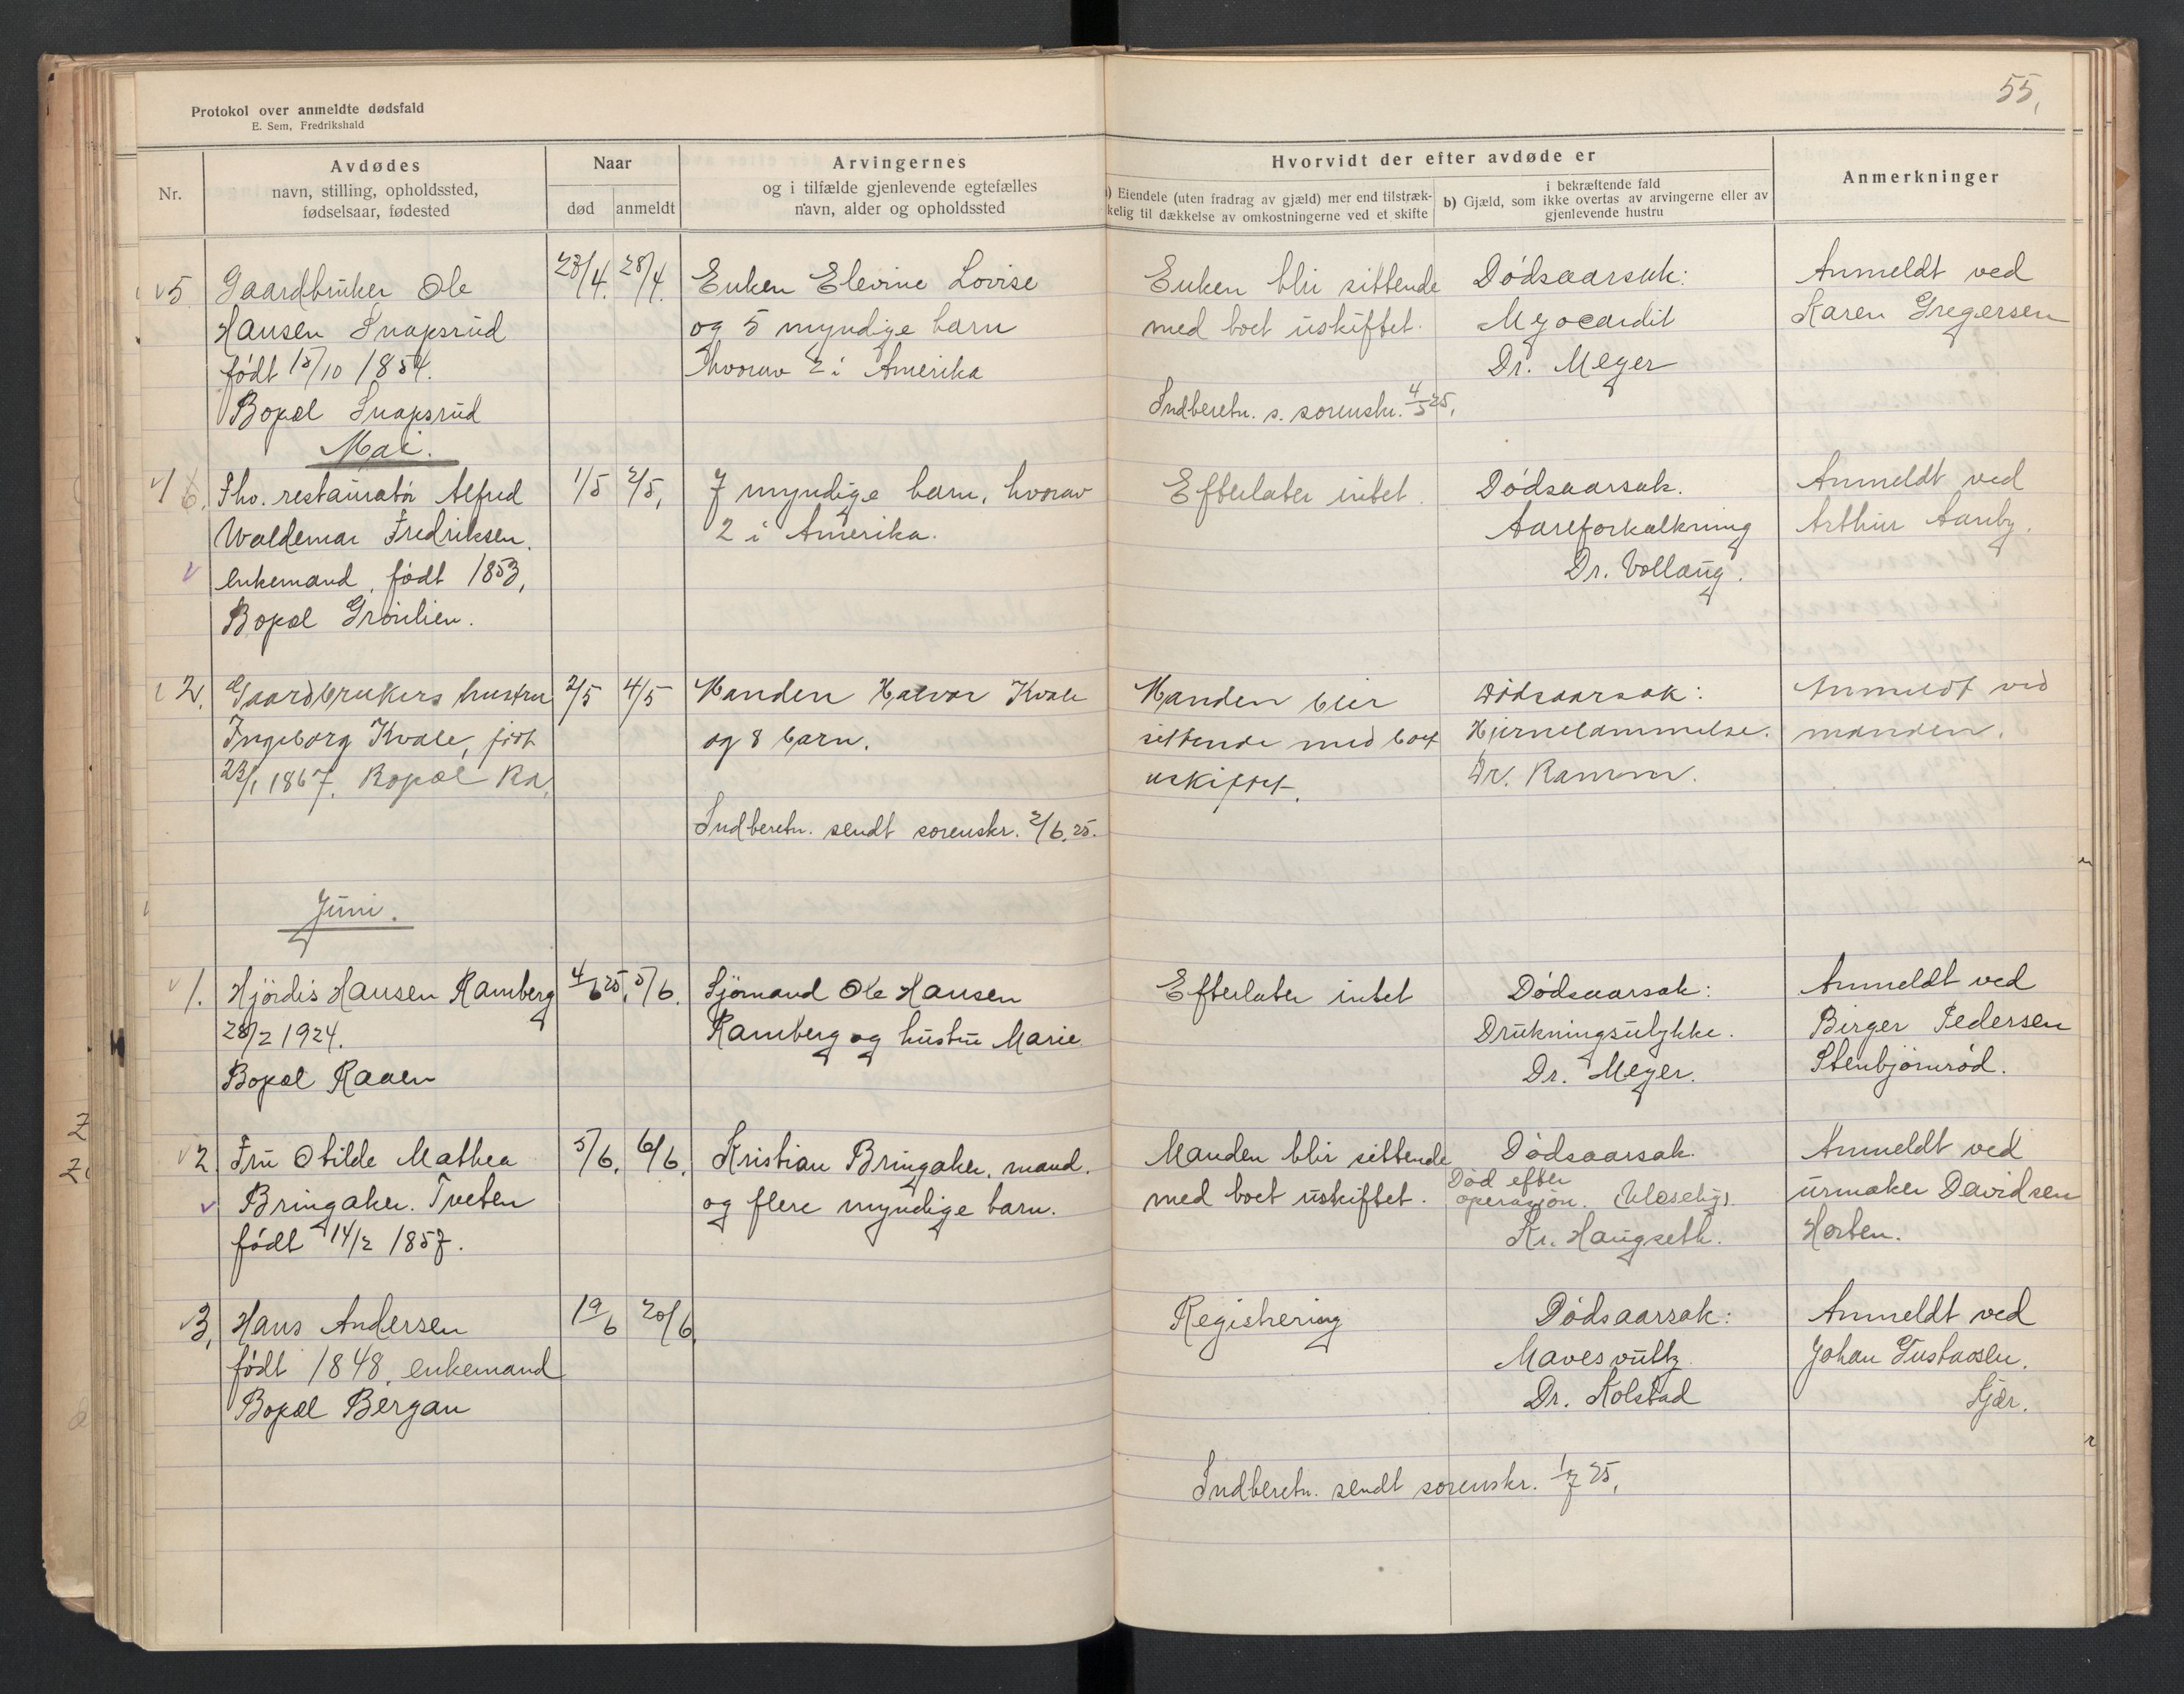 55,
Protokol over anmeldte dødsfald
E. Sem, Fredrikshald
Nr.
Avdødes
navn, stilling, opholdssted,
fødselsaar, fødested
Naar
død anmeldt
Arvingernes
og i tilfælde gjenlevende egtefælles
navn, alder og opholdssted
Hvorvidt der efter avdøde er
a) Eiendele (uten fradrag av gjæld) mer end tilstræk-
kelig til dækkelse av omkostningerne ved et skifte
i bekræftende fald
b) Gjæld, som ikke overtas av arvingerne eller av
gjenlevende hustru
Anmerkninger
5 Gaardbruker Ole
Hansen Snapsrud
født 15/10 1854.
Bopæl Snapsrud
28/4. 28/4.
Enken Elevine Lovise
og 5 myndige barn
hvorav 2 i Amerika
Enken bli sittende
med boet uskiftet.
Indberetn. s. sorenskr. 4/5 25,
Dödsaarsak:
Myocardit
Dr. Meyer
Anmeldt ved
Karen Gregersen
Mai.
Fhv. restauratör Alfred
Waldemar Fredriksen
enkemand, født 1853,
Bopæl Grönlien.
1/5 2/5,
7 myndige barn, hvorav
2 i Amerika.
Efterlater intet.
Dödsaarsak.
Aareforkalkning
Dr. Vollaug.
Anmeldt ved
Arthur Aanby.
2. Gaardbrukers hustru
Ingeborg Kvale, född
23/1 1867. Bopæl Ra,
2/5 4/5
Manden Halvor Kvale
og 8 barn.
Indberetn. sendt sorenskr. 2/6. 25.
Manden blir
sittende med boet
uskiftet.
Dödsaarsak:
Hjernelammelse.
Dr. Ramm.
Anmeldt ved
manden.
Juni.
1. Hjördis Hansen Ramberg
28/2 1924.
Bopæl Raaen
4/6 25, 5/6.
Sjömand Ole Hansen
Ramberg og hustru Marie
Efterlater intet
Dödsaarsak:
Drukningsulykke.
Dr. Meyer.
Anmeldt ved
Birger Pedersen
Stenbjörnröd.
2 Fru Otilde Mathea
Bringaker. Tveten
født 14/2 1857.
5/6. 6/6.
Kristian Bringaker, mand.
og flere myndige barn.
Manden blir sittende
med boet uskiftet.
Dödsaarsak.
Död efter
operasjon.
Kr. Haugseth.
Anmeldt ved
urmaker Davidsen
Horten.
3, Hans Andersen
født 1848, enkemand
Bopæl Bergan
19/6 20/6.
Registrering
Dödsaarsak:
Mavesvulst
Dr. Kolstad
Anmeldt ved
Johan Gustavsen.
Kjær.
Indberetn. sendt sorenskr. 1/7 25,